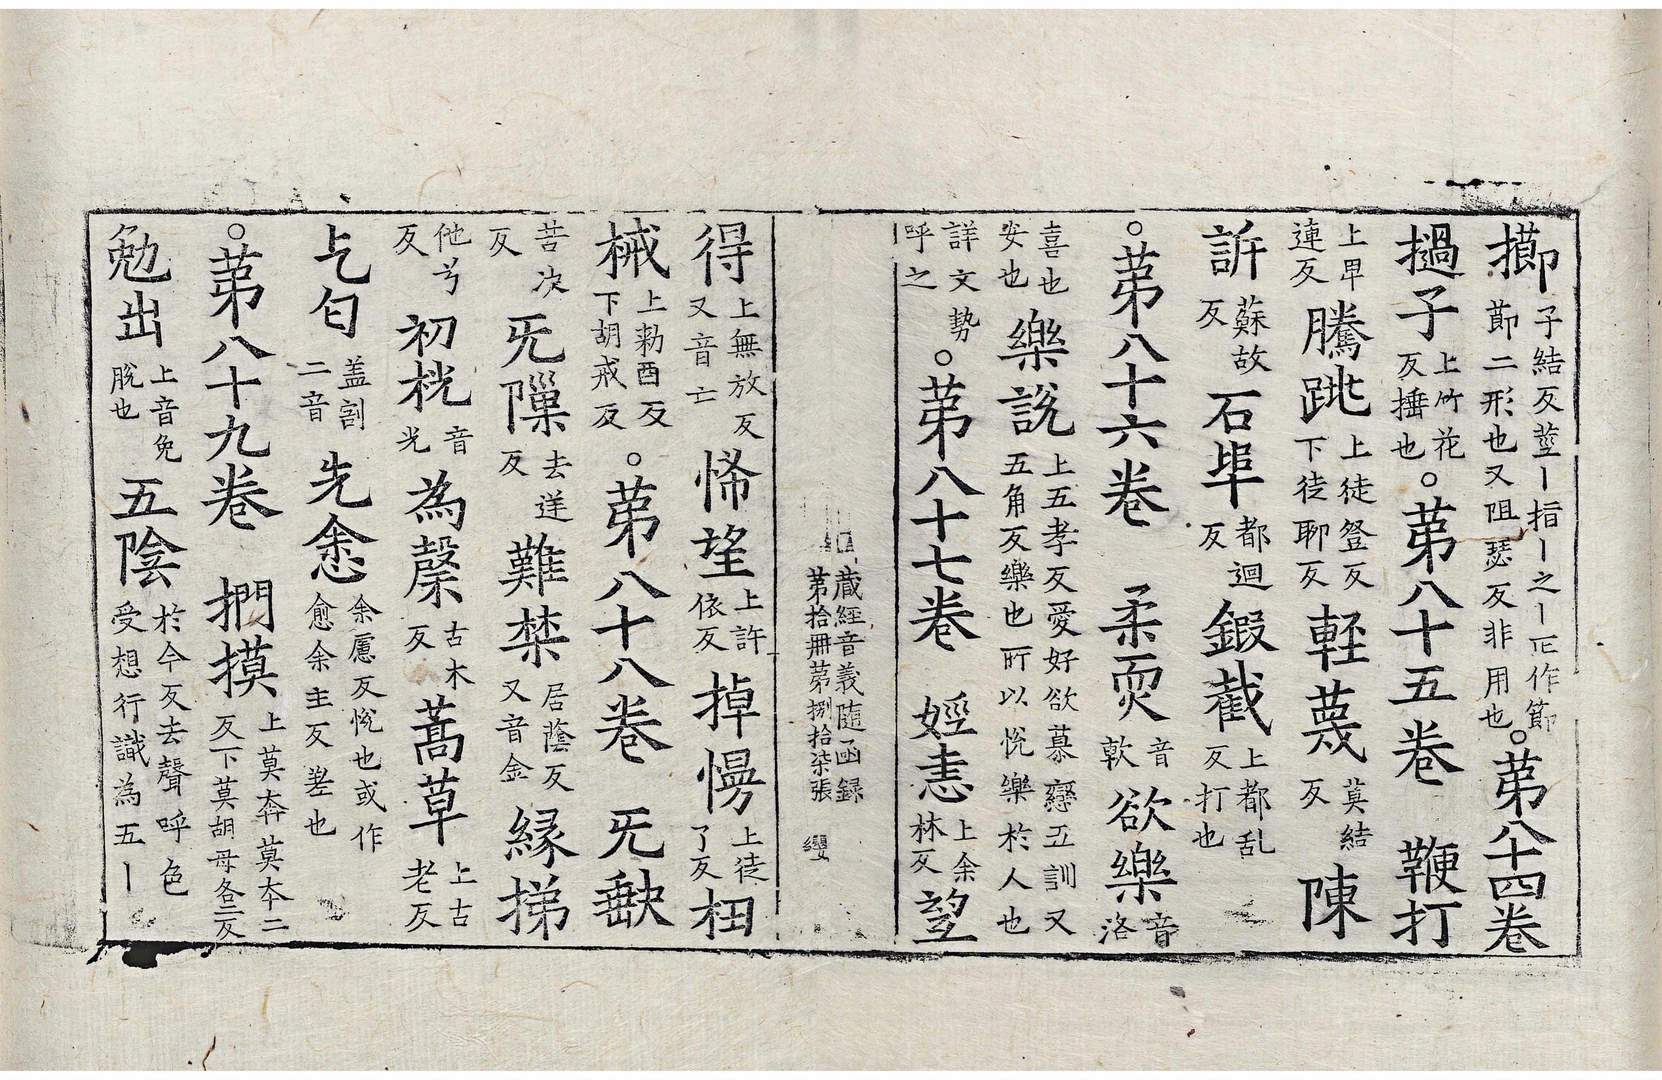 擳子結反莖丨指丨之丨正作節莭二形也又阻瑟反非用也○第八十四卷
撾子上竹花反捶也○第八十五卷 鞭打
上丑連反騰跳上徒登反下徒聊反輕蔑莫結反陳
訴蘇故反石埠都迴反鍛截上都乱反打也
○第八十六卷 柔耎音軟欲樂音洛
喜也安也樂說上五孝反愛好欲慕戀五訓又五角反樂也所以悅樂於人也
詳文勢呼之○第八十七卷 婬恚上余林反望
藏經音義隨函録
第拾冊第捌拾柒張 纓
得上無放反又音亡悕望上許依反掉慢上徒了反杻
械上勑酉反下胡戒反○第八十八卷 旡缺
苦决反旡隟去逆反難禁居蔭反又音金緣梯
他兮反初桄音光為罄古木反蒿草上古老反
乞匄盖割二音先愈余慮反悅也或作愈余主反差也
○第八十九卷 捫摸上莫奔莫本二反下莫胡母各二反
勉出上音免脫也五陰於今反去聲呼色受想行識為五丨